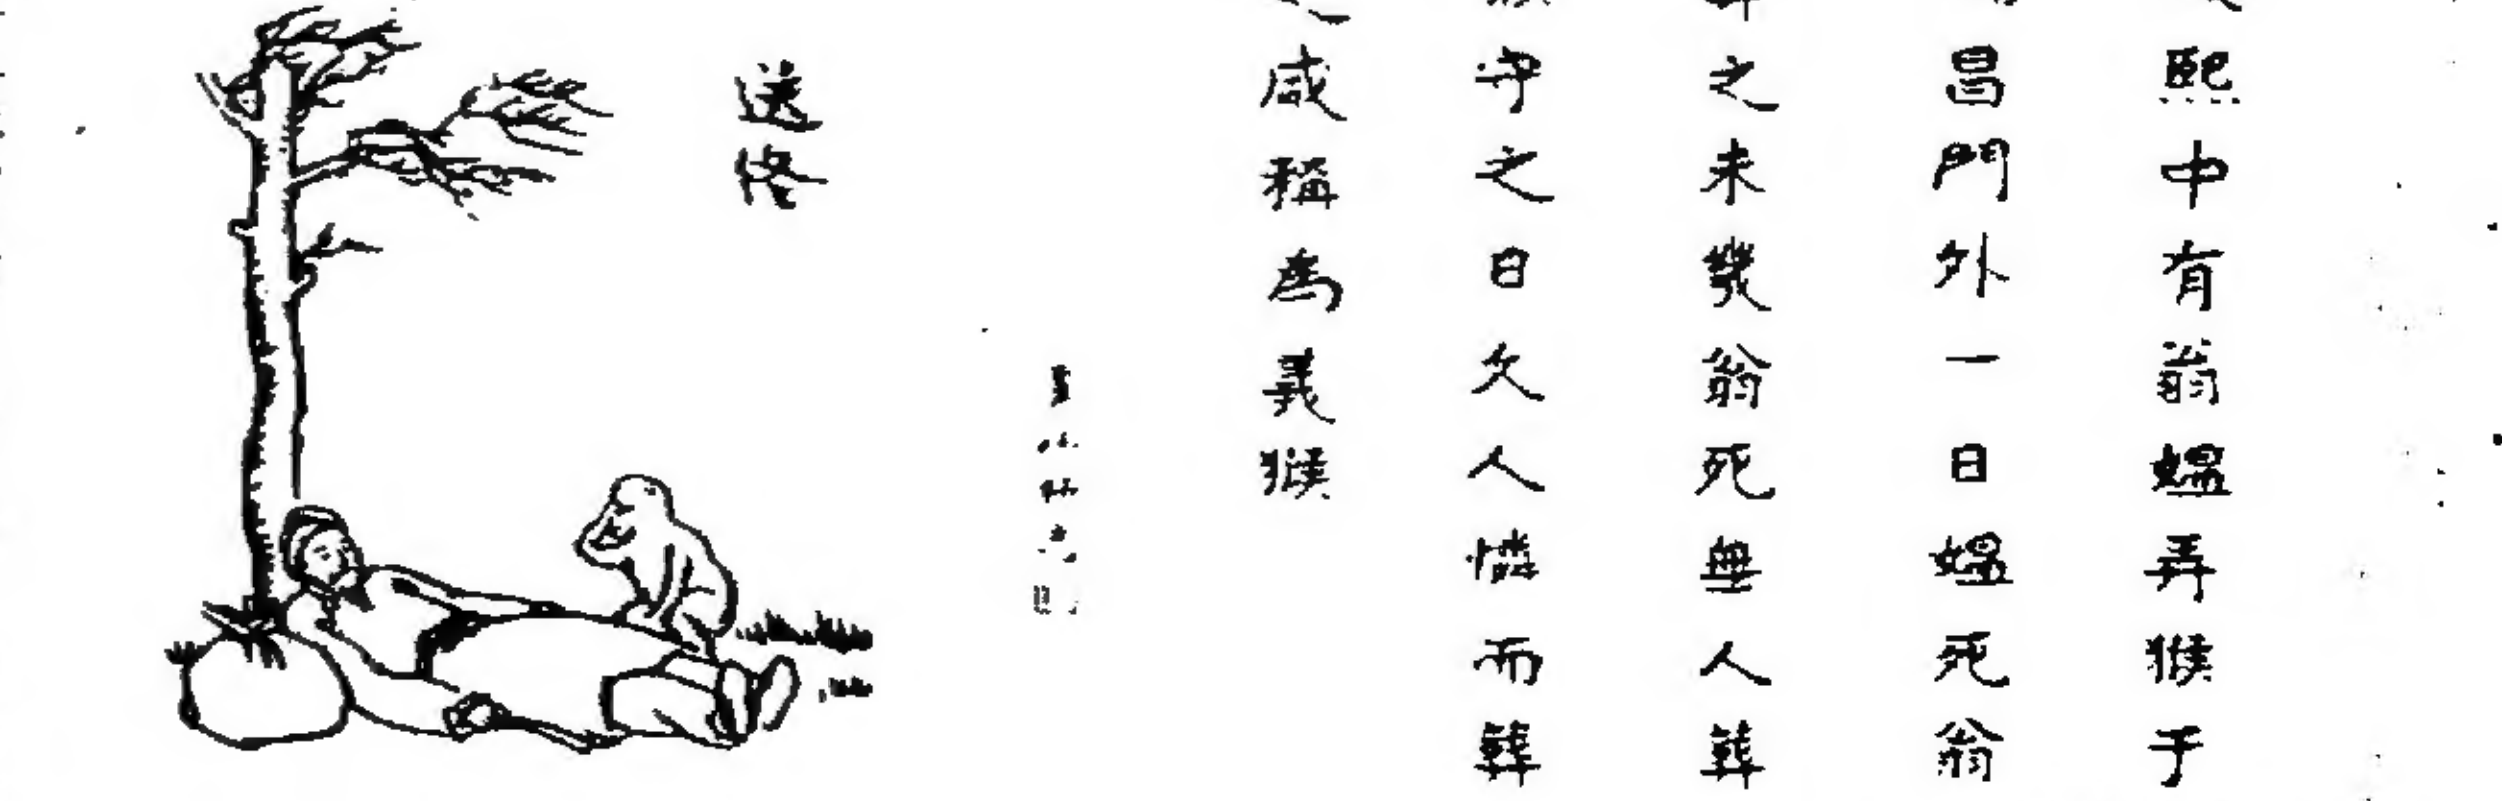 熙中有翁媼弄猴于
昌門外一日媼死翁
之未幾翁死無人葬
守之日久人憐而葬
咸稱為義猴
送終